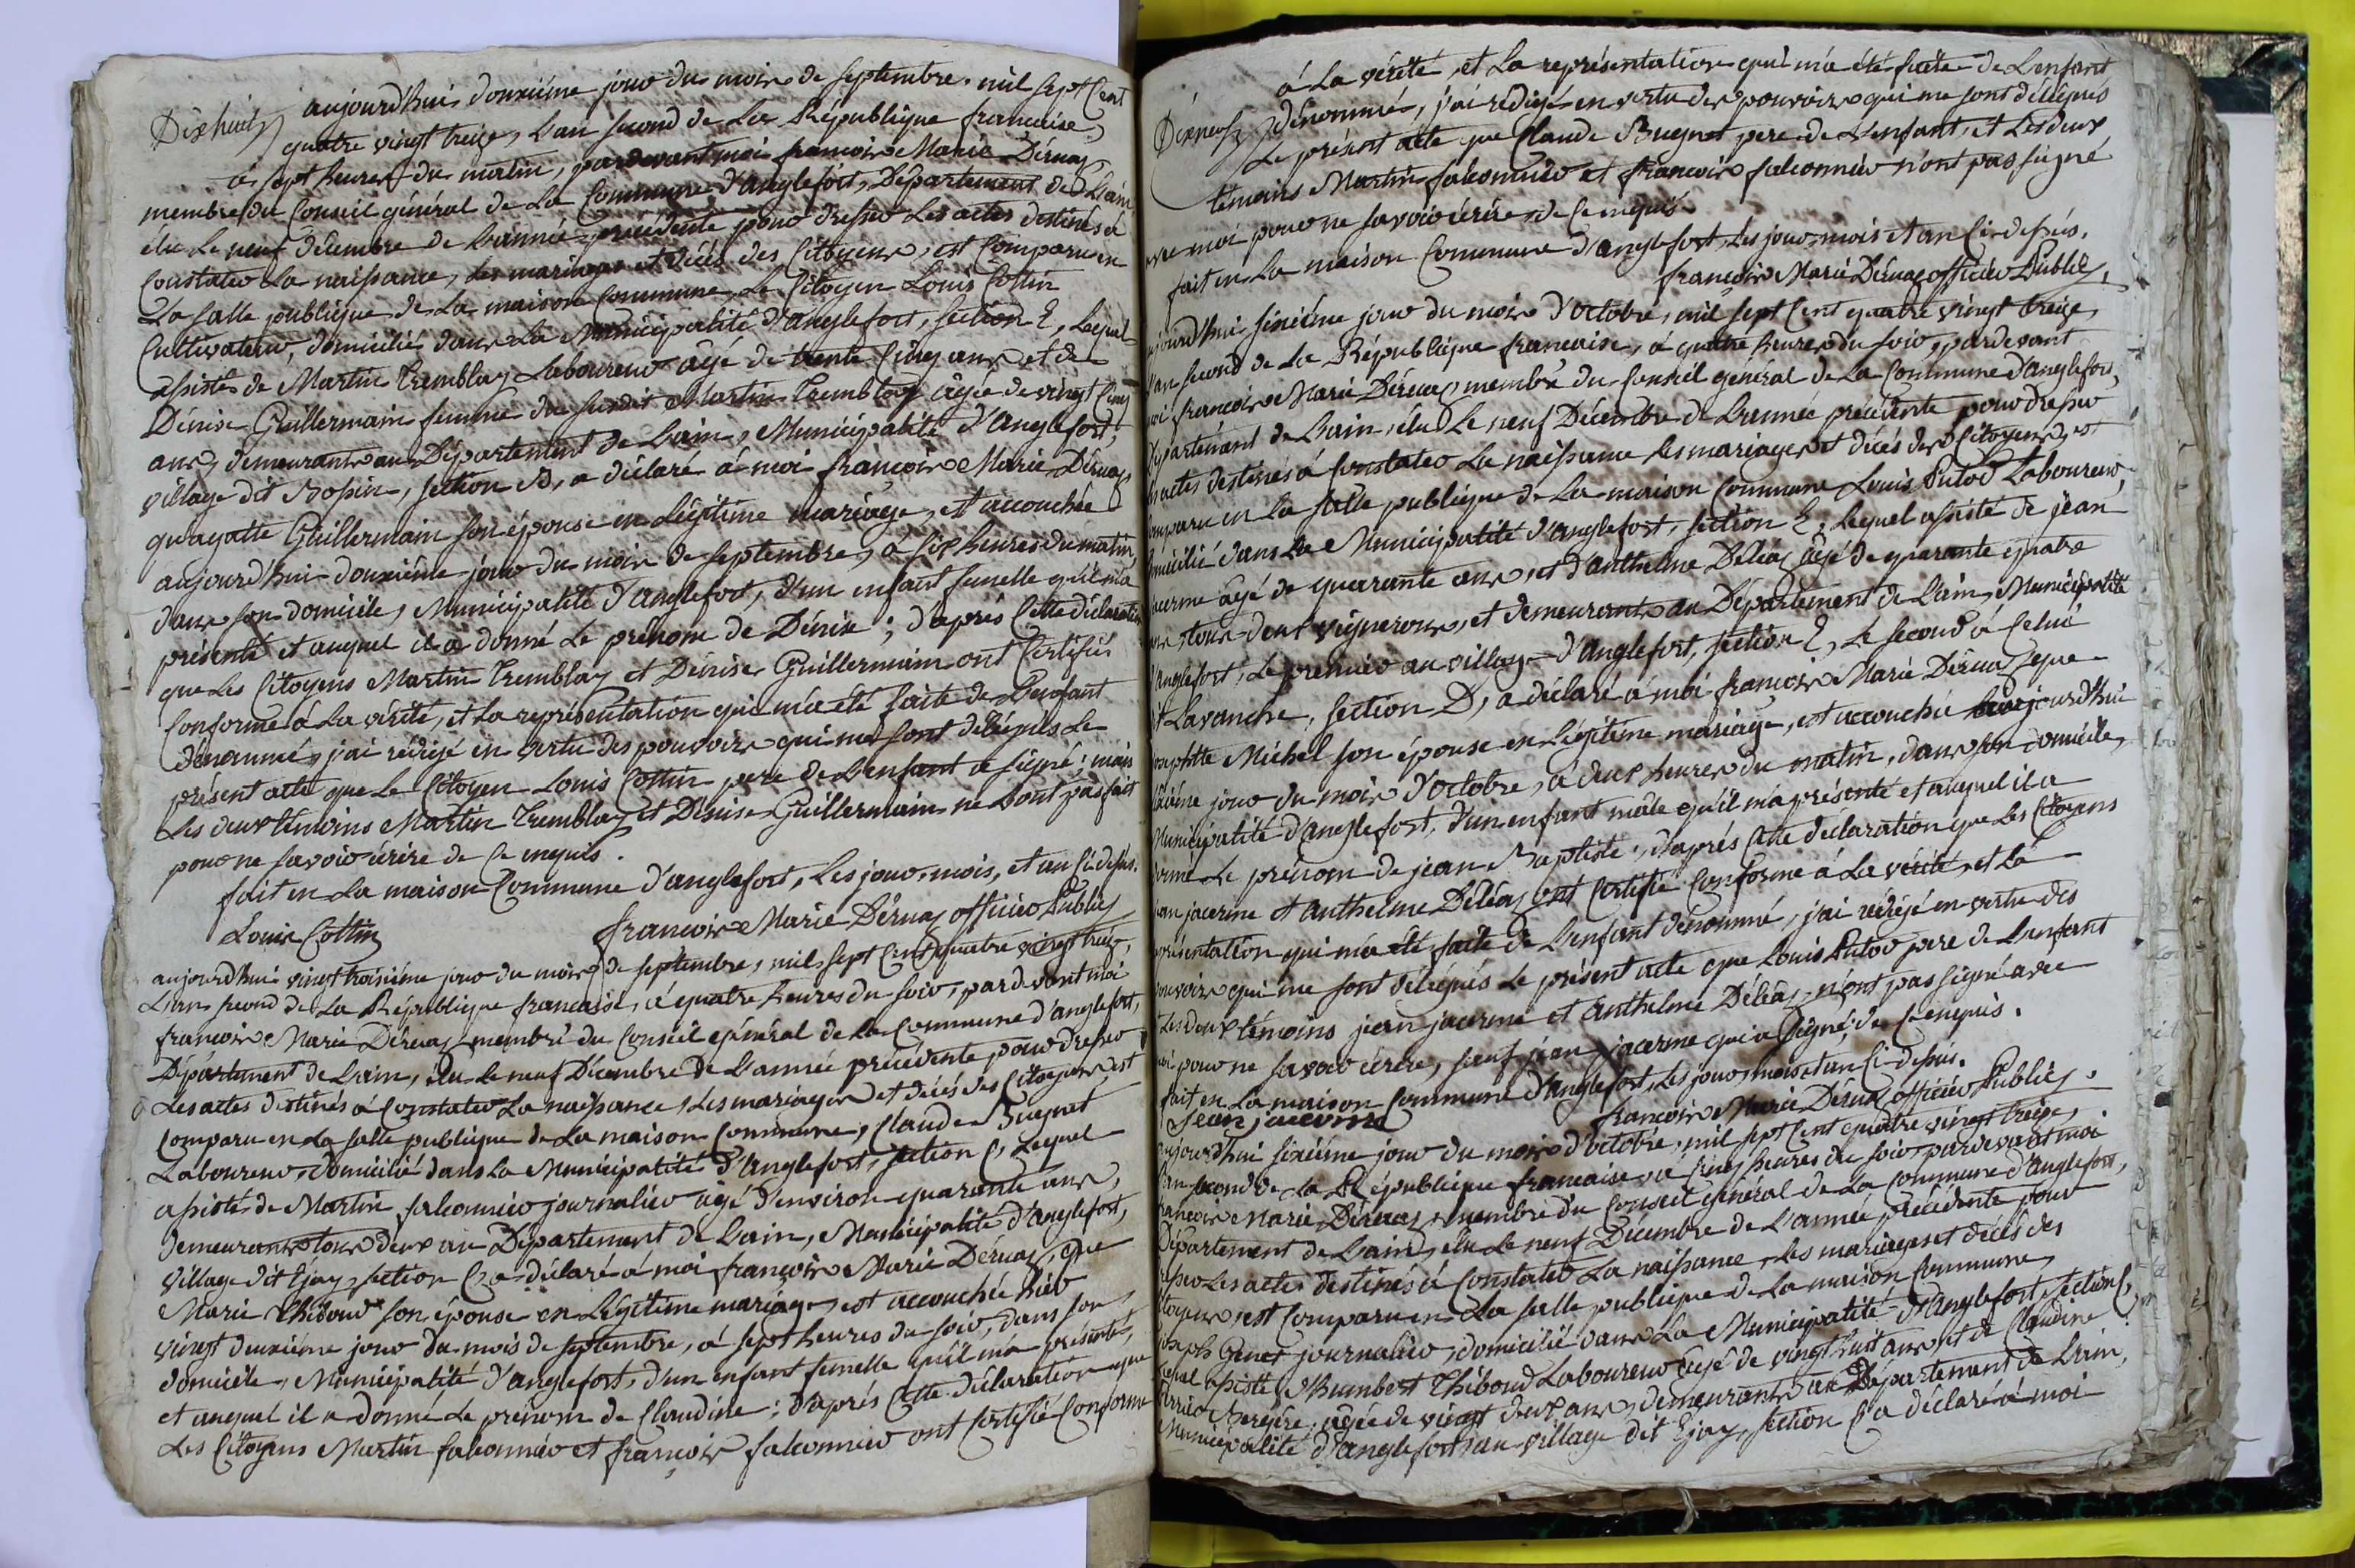 Dixhuit
aujourd'hui douxiéme jour du mois de septembre, mil sept Cent
quatre vingt treize, L'an second de La République francaise,
a sept heures du matin, pardevant moi francois Marie Déruaz
membre du Conseil général de La Commune d'anglefort, Département de L'ain
élu Le neuf décembre de L'année précédente pour dresser Les actes destinés à
Constater La naissance, Les mariages et décès des Citoyens, est Comparu en
La salle publique de La maison Commune, Le Citoyen Louis Cottin
Cultivateur, domicilié dans La Municipalité d'anglefort, section E, Lequel
assisté de Martin Tremblay Laboureur agé de trente Cinq ans et de
Dénise Guillermain femme du susdit Martin Tremblay agée de vingt Cinq
ans, demeurants au Département de L'ain, Municipalité d'Anglefort,
village dit Bossin, section B, a déclaré à moi francois Marie Déruaz
qu'agatte Guillermain son épouse en Légitime mariage, est accouchée
aujourd'hui douxiéme jour du mois de septembre, à six heures du matin,
dans son domicile, Municipalité d'anglefort, d'un enfant femelle qu'il m'a
présenté et auquel il a donné Le prénom de Dénise ; d'après Cette déclaration
que Les Citoyens Martin Tremblay et Dénise Guillermain ont Certifié
Conforme à La vérité, et La représentation qui m'a été faite de L'enfant
dénommé, j'ai rédigé en vertu des pouvoirs qui me sont délégués Le
présent acte que Le Citoyen Louis Cottin pere de L'enfant a signé ; mais
Les deux témoins Martin Tremblay et Dénise Guillermain ne L'ont pas fait
pour ne savoir écrire de Ce enquis.
fait en La maison Commune d'anglefort, Les jour, mois, et an Ci-dessus.
Louis Cottin francois Marie Déruaz officier Public
aujourd'hui vingt troisiéme jour du mois de septembre, mil sept Cent quatre vingt treize,
L'an second de La République francaise, à quatre heures du soir, pardevant moi
francois Marie Déruaz membre du Conseil général de La Commune d'anglefort,
Département de L'ain, élu Le neuf Décembre de L'année précédente pour dresser
Les actes destinés à Constater La naissance, Les mariages et décès des Citoyens est
Comparu en La salle publique de La maison Commune, Claude Bugnet
Laboureur, domicilié dans La Municipalité d'Anglefort, section C, Lequel
assisté de Martin falconnier journalier agé d'environ quarante ans,
demeurants tous deux au Département de L'ain, Municipalité d'Anglefort,
village dit Ejoz, section C, a déclaré à moi françois Marie Déruaz, que
Marie Thiboud son épouse en Légitime mariage, est accouchée hier
vingt deuxiéme jour du mois de septembre, à sept heures du soir, dans son
domicile, Municipalité d'anglefort, d'un enfant femelle qu'il m'a présenté,
et auquel il a donné Le prénom de Claudine ; d'après Cette déclaration que
Les Citoyens Martin falconnier et françois falconnier ont Certifié Conforme
à La vérité, et La représentation qui m'a été faite de L'enfant
Dixneuf
dénommé, j'ai rédigé en vertu des pouvoirs qui me sont délégués
Le présent acte que Claude Bugnet pere de L'enfant, et Les deux
témoins Martin falconnier et francois falconnier n'ont pas signé
moi pour ne savoir écrire, de Ce enquis.
fait en La maison Commune d'anglefort, Les jour, mois et an Ci-dessus.
françois Marie Déruaz officier Public,
aujourd'hui sixiéme jour du mois d'octobre, mil sept Cent quatre vingt treize,
L'an second de La République francaise, a quatre heures du soir, pardevant
moi francois Marie Déruaz, membre du Conseil général de La Commune d'Anglefort,
Département de L'ain, élu Le neuf Décembre de L'année précédente pour dresser
Les actes destinés à Constater La naissance Les mariages et décès des Citoyens, est
Comparu en La salle publique de La maison Commune Louis Putod Laboureur,
domicilié dans La Municipalité d'Anglefort, section E, Lequel assisté de jean
jacerme agé de quarante ans, et d'Anthelme Déléaz agé de quarante quatre
ans, tous deux vignerons, et demeurants au Département de L'ain, Municipalité
d'Anglefort, Le premier au village d'Anglefort, section E, Le second à Celui
dit Lavanche, section D, a déclaré à moi françois Marie Déruaz, que
Michel son épouse en Légitime mariage, est accouchée aujourd'hui
sixiéme jour du mois d'octobre, à deux heures du matin, dans son domicile,
Municipalité d'Anglefort, d'un enfant mâle qu'il m'a présenté et auquel il a
donné Le prénom de jean Baptiste ; d'après Cette déclaration que Les Citoyens
jean jacerme et Anthelme Déléaz ont Certifié Conforme à La vérité, et La
présentation qui m'a été faite de L'enfant dénommé, j'ai rédigé en vertu des
pouvoirs qui me sont délégués Le présent acte que Louis Putod pere de L'enfant
et Les deux témoins jean jacerme et Anthelme Déléaz, n'ont pas signé avec
moi pour ne savoir écrire, sauf jean jacerme qui a signé, de Ce enquis.
fait en La maison Commune d'Anglefort, Les jour, mois et an Ci-dessus.
Jean jacerme françois Marie Déruaz officier Public,
aujourd'hui sixiéme jour du mois d'octobre, mil sept Cent quatre vingt treize,
L'an second de La République francaise, a Cinq heures du soir, pardevant moi
francois Marie Déruaz, membre du Conseil général de La Commune d'Anglefort,
Département de L'ain, élu Le neuf Décembre de L'année précédente pour
dresser Les actes destinés à Constater La naissance, Les mariages et décès des
Citoyens, est Comparu en La salle publique de La maison Commune,
joseph Genet journalier, domicilié dans La Municipalité d'Anglefort, section C,
Lequel assisté d'humbert Thiboud Laboureur agé de vingt huit ans et de Claudine
agée de vingt deux ans, demeurants au Département de L'ain,
Municipalité d'anglefort, au village dit Ejoz, section C a déclaré à moi